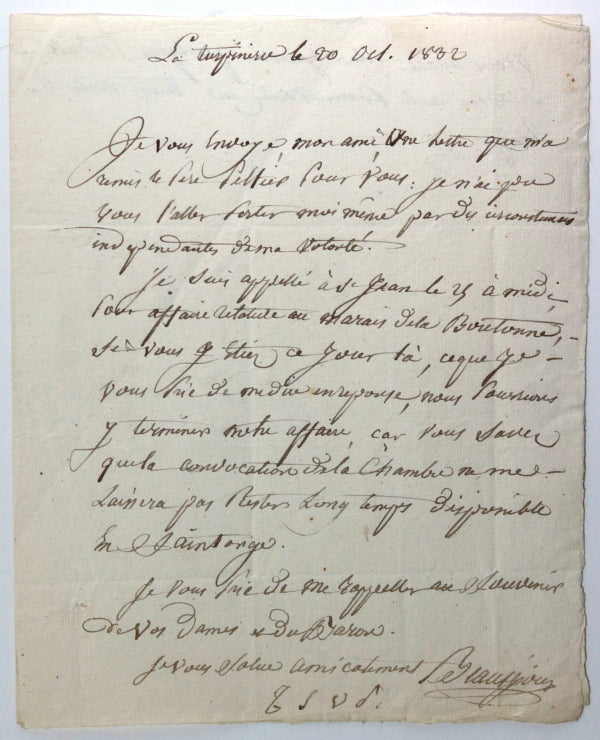 La turpinerie le 20 Oct. 1832
Je vous Envoye, mon ami, Une lettre que m'a
remis le Père Peltier Pour Vous: je n'ai pu
vous l'aller Porter moi même par des circonstances
indépendantes de ma Volonté.
Je suis appellé à St Jean le 25 à midi,
Pour affaire relative au marais de la Boutonne, -
Si vous y Etiez ce Jour là, ce que Je -
vous Prie de me dire en reponse, nous Pourrions
y terminer notre affaire, car vous Savez
que la convocation de la Chambre ne me -
Laissera pas Rester Long temps disponible
En Saintonge.
Je vous Prie de me rappeller au Souvenir
de vos Dames & du Baron.
Je vous Salue amicalement
T S V P.